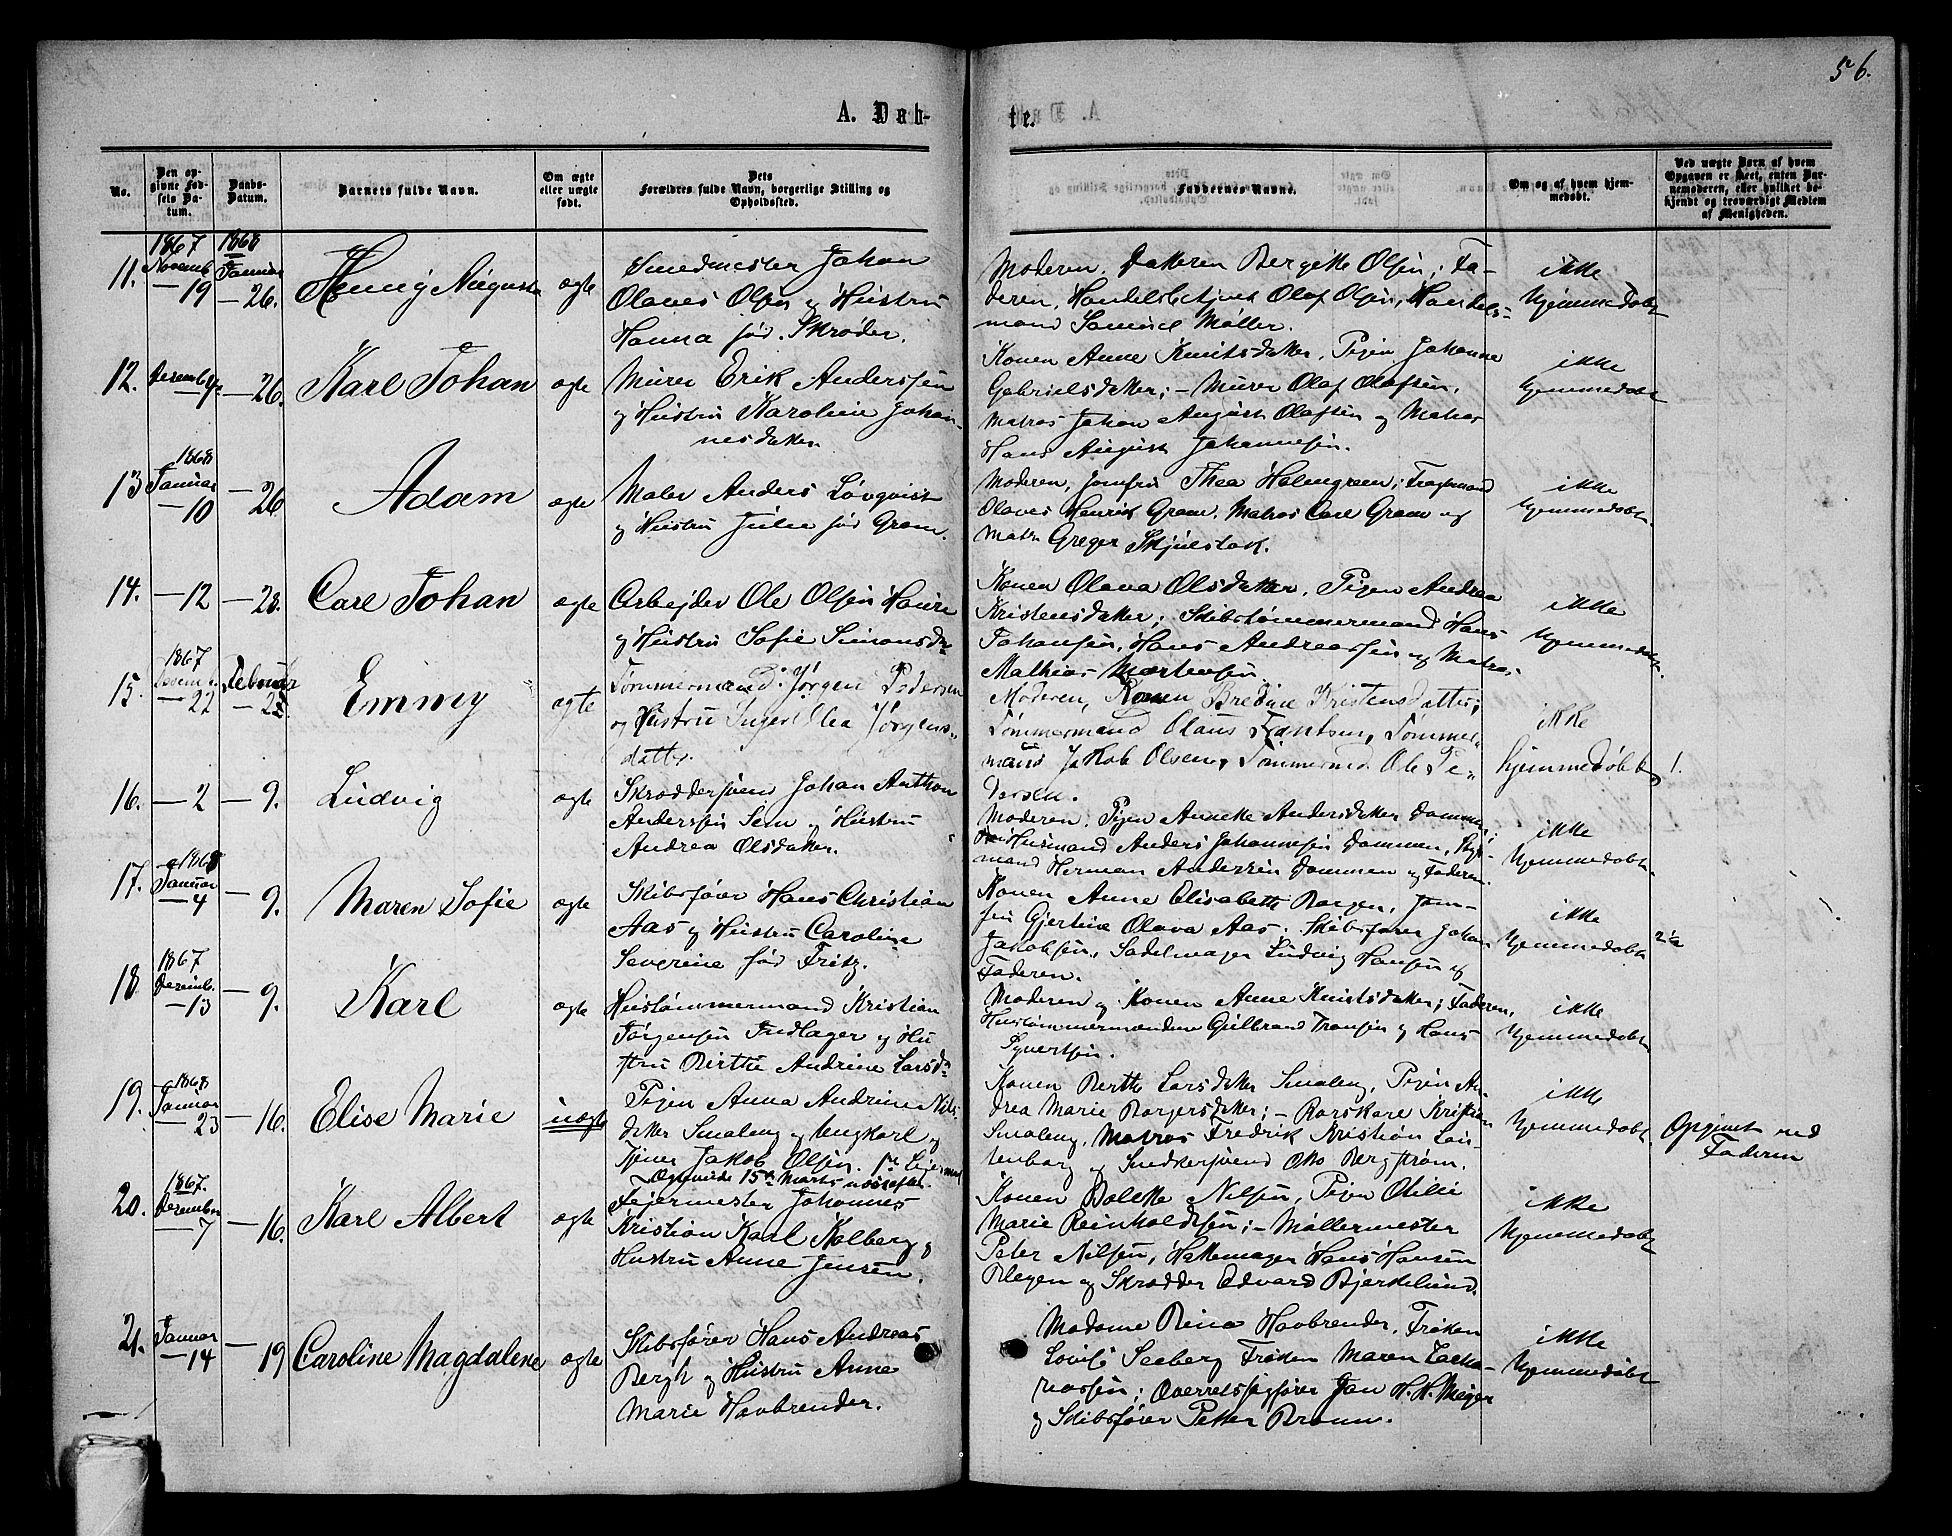 56.
A. Døb-
te.
No.
Den op-
givne Fød-
sels Da-
tum.
Daabs-
Datum.
Barnets fulde Navn.
Om ægte
eller uægte
født.
Dets
Forældres fulde Navn, borgerlige Stilling og
Opholdssted.
Faddernes Navne.
Om og af hvem hjem-
medøbt.
Ved uægte Børn af hvem
Opgaven er skeet, enten Bar-
nemoderen, eller hvilket be-
kjendt og troværdigt Medlem
af Menigheden.
11.
1867
Novemb
— 19
1868
Januar
— 26.
Henny Augusta
ægte
Smedmester Johan
Olaves Olsen og Hustru
Hanna fød Skrøder.
Moderen. Datteren Bergitte Olsen; Fa-
deren, Handelsbetjent Olaf Olsen, Handels-
mand Samuel Møller.
ikke
hjemmedøbt
12.
Desemb
— 26.
Karl Johan
ægte
Murer Erik Anderssen
og Hustru Karoline Johan-
nesdatter
Konen Anne Knutsdatter, Pigen Johanne
Gabrielsdatter; — Murer Olaf Olafsen,
Matros Johan August Olafsen og Matros
Hans August Johannesen.
ikke
hjemmedøbt
13
1868
Januar
— 10
— 26
Adam
ægte
Maler Anders Løvqvist
og Hustru Julie fød Gram.
Moderen, Jomfru Thea Holmgreen;
Olaves Henrik Gram, Matros Carl Gram og
Matr. Greger Skjølstok.
ikke
hjemmedøbt.
14.
— 12
— 28.
Carl Johan
ægte
Arbejder Ole Olsen
og Hustru Sofie Simonsdr
Konen Olava Olsdatter, Pigen Andrea
Kristensdatter; Skibstømmermand Hans
Johansen, Hans Andreassen og Matros
Mathias Martinsen.
ikke
hjemmedøbt
15.
1867
— 22
Februar
Emmy
ægte
Tømmermand Jørgen Pedersen
og Hustru Inger Olea Jørgens-
datter.
Moderen, Konen Bredine Kristensdatter;
Tømmermand Olaus Frantsen, Tømmer-
mand Jakob Olsen, Tømmermd Ole Pe-
dersen.
ikke
hjemmedøbt
1.
16.
— 2
— 9.
Ludvig
ægte
Skræddersvend Johan Anthon
Anderssen Sem og Hustru
Andrea Olsdatter.
Moderen. Pigen Annette Andersdatter Dammen;
Husmand Anders Johannesen Dammen,
mand Herman Anderssen Dammen og Faderen.
ikke
hjemmedøbt.
17.
1868
Januar
— 4
— 9.
Maren Sofie
ægte
Skibsfører Hans Christian
Aas og Hustru Caroline
Severine fød Fritz.
Konen Anne Elisabeth Borgen, Jom-
fru Gjertine Olava Aas. Skibsfører Johan
Jakobsen, Sadelmager Ludvig Hansen og
Faderen.
ikke
hjemmedøbt
18
1867
Desemb.
— 13
— 9.
Karl
ægte
Hustømmermand Kristian
Jørgensen Indlager og Hu-
stru Birthe Andrine Larsdr
Moderen og Konen Anne Knutsdatter; Faderen,
Hustømmermændene Gulbrand Fransen og Hans
Syvertsen.
ikke
hjemmedøbt
19.
1868
Januar
— 23
— 16.
Elise Marie
uægte
Pigen Anna Andrine Nils-
datter Smaleng og Ungkarl og
Tjener Jakob Olsen. 1ste Leiermaal
Konen Berthe Larsdatter Smaleng, Pigen An-
drea Marie Borgersdatter; — Borskare Kristian
Smaleng, Matros Fredrik Kristian Lau-
tenborg og Snedkersvend Otto Bergstrøm.
ikke
hjemmedøbt
Opgivet ved
Faderen
20.
1867.
Desember
— 7
— 16.
Karl Albert
ægte
Fejermester Johannes
Kristian Karl Kolberg og
Hustru Anne Jensen.
Konen Bolette Nilsen, Pigen Otilie
Marie Reinholdtsen; — Møllermester
Peter Nilsen, Hattemager Hans Hansen
Blegen og Skrædder Edvard Bjerkelund.
ikke
hjemmedøbt
21.
Januar
— 14
— 19
Caroline Magdalene
ægte
Skibsfører Hans Andreas
Bergh og Hustru Anne
Marie Havbrender.
Madame Rina Havbrender, Frøken
Lovise Seeberg Frøken Maren Zacka-
riassen; Overretssagfører Jan H. H. Meyer
og Skibsfører Petter Bruun.
ikke
hjemmedøbt